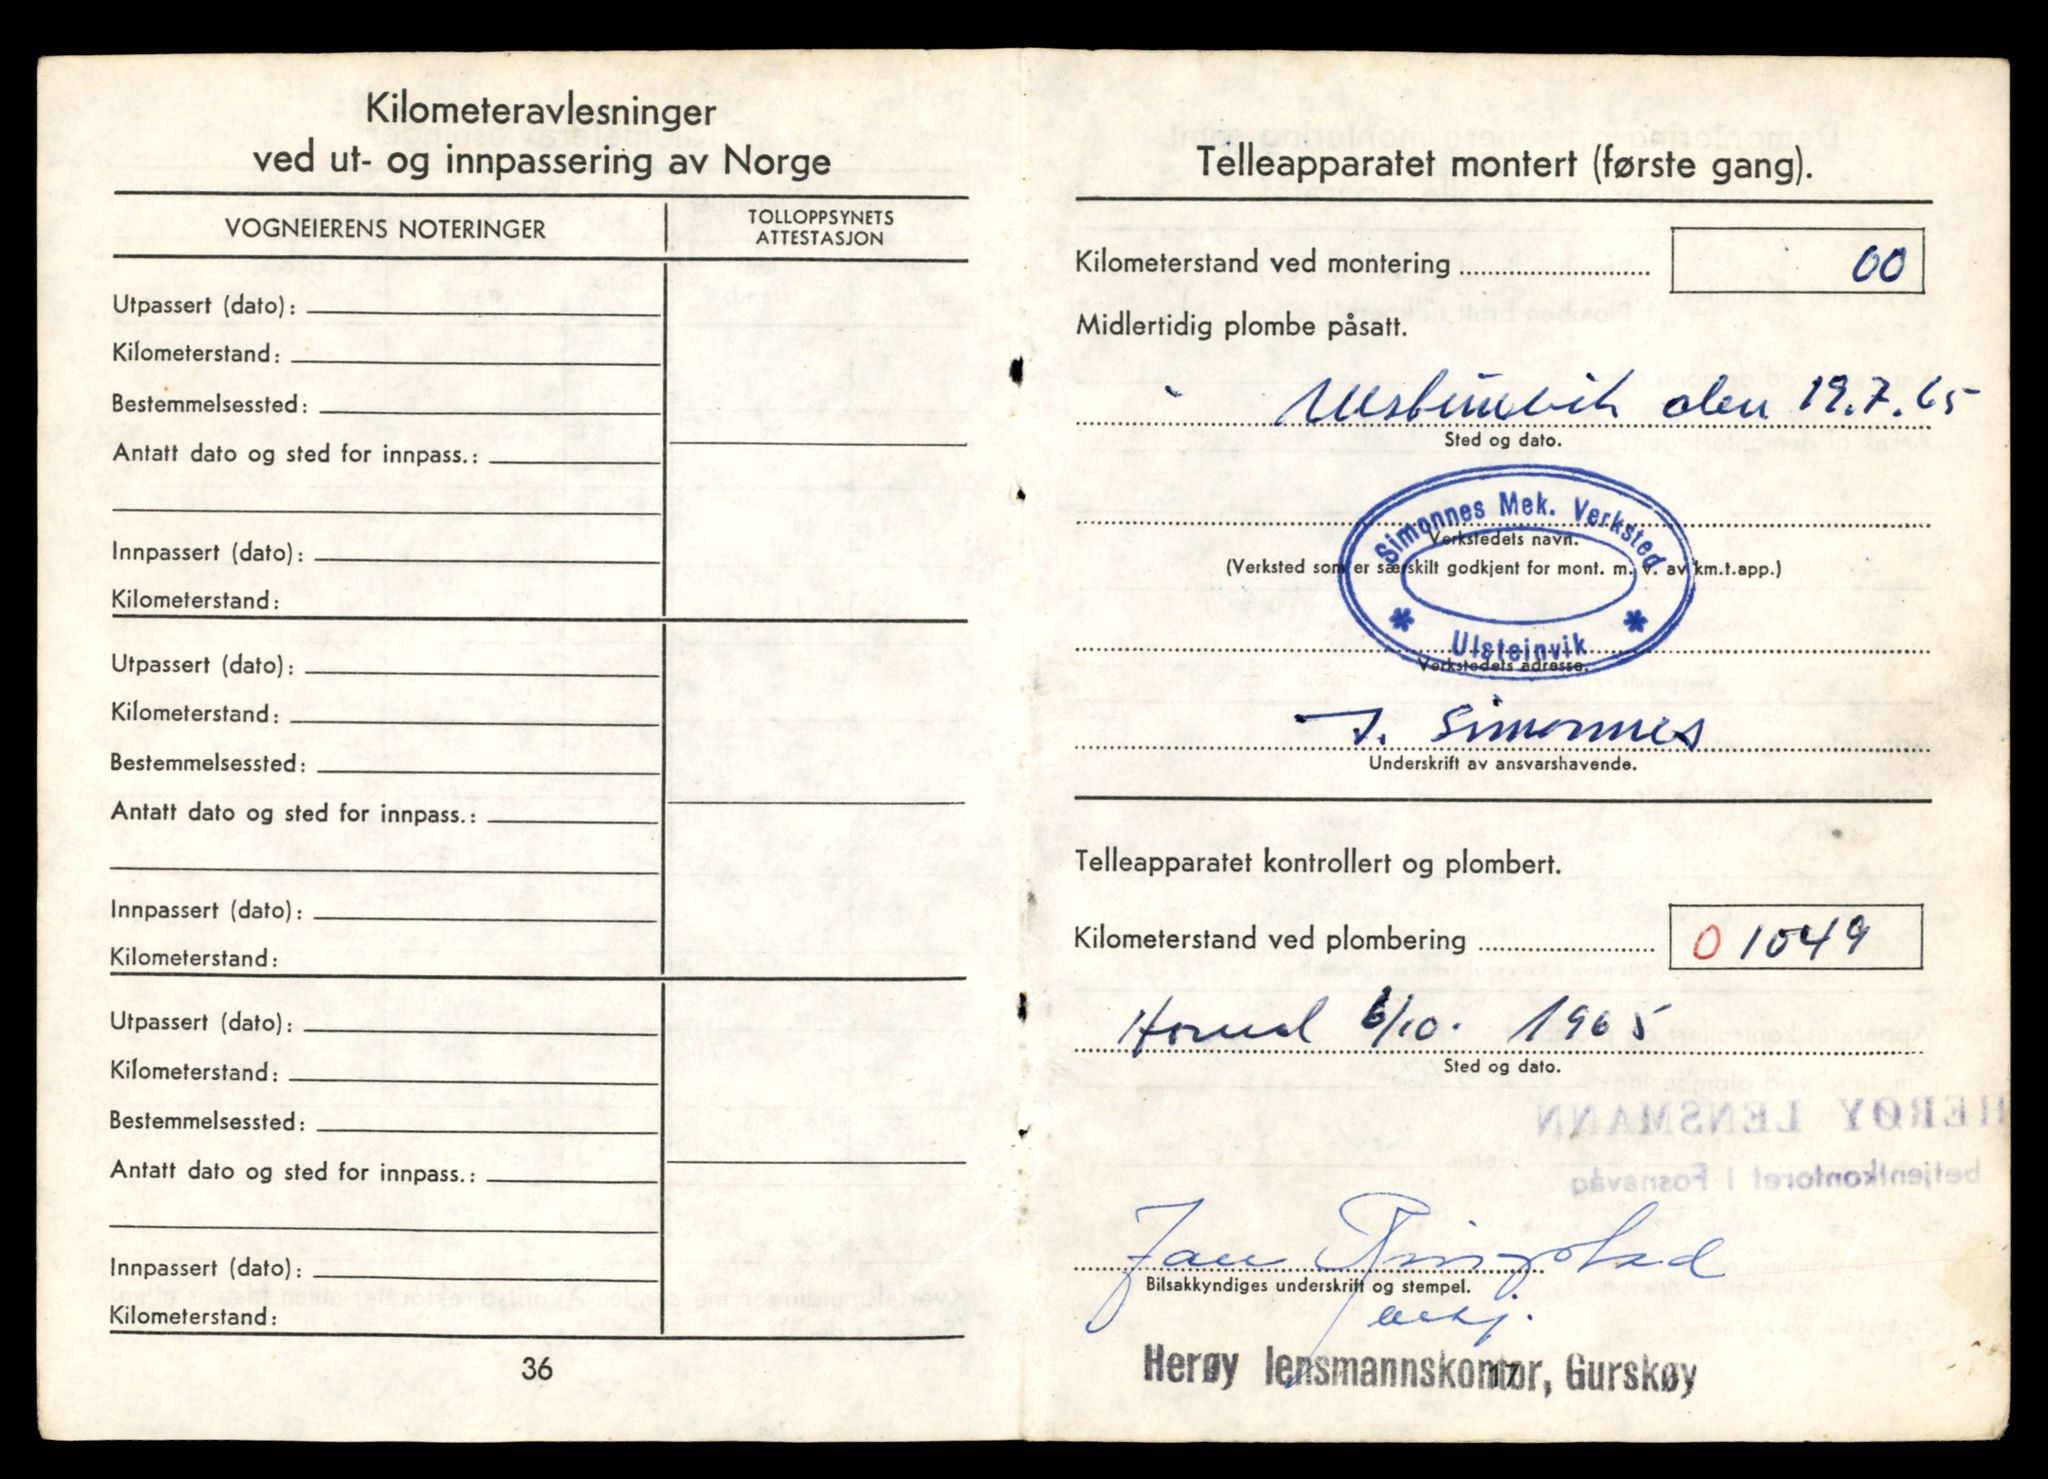 Kilometeravlesninger
ved ut- og innpassering av Norge
VOGNEIERENS NOTERINGER
TOLLOPPSYNETS
ATTESTASJON
Utpassert (dato):
Kilometerstand:
Bestemmelsessted:
Antatt dato og sted for innpass.:
Innpassert (dato):
Kilometerstand:
Utpassert (dato):
Kilometerstand:
Bestemmelsessted:
Antatt dato og sted for innpass.:
Innpassert (dato):
Kilometerstand:
Utpassert (dato):
Kilometerstand:
Bestemmelsessted:
Antatt dato og sted for innpass.:
Innpassert (dato):
Kilometerstand:
36
Telleapparatet montert (første gang).
Kilometerstand ved montering 00
Midlertidig plombe påsatt.
Ulsteinvik den 19.7.65
Sted og dato.
Simonnes Mek. Verksted
Verkstedets navn.
(Verksted som er særskilt godkjent for mont. m. v. av km.t.app.)
Ulsteinvik
Verkstedets adresse.
J. Simonnes
Underskrift av ansvarshavende.
Telleapparatet kontrollert og plombert.
Kilometerstand ved plombering 01049
6/10. 1965
Sted og dato.
HERØY LENSMANN
betjentkontoret i Fosnavåg
Jan Ringstad
Bilsakkyndiges underskrift og stempel.
Herøy lensmannskontor, Gurskøy
17